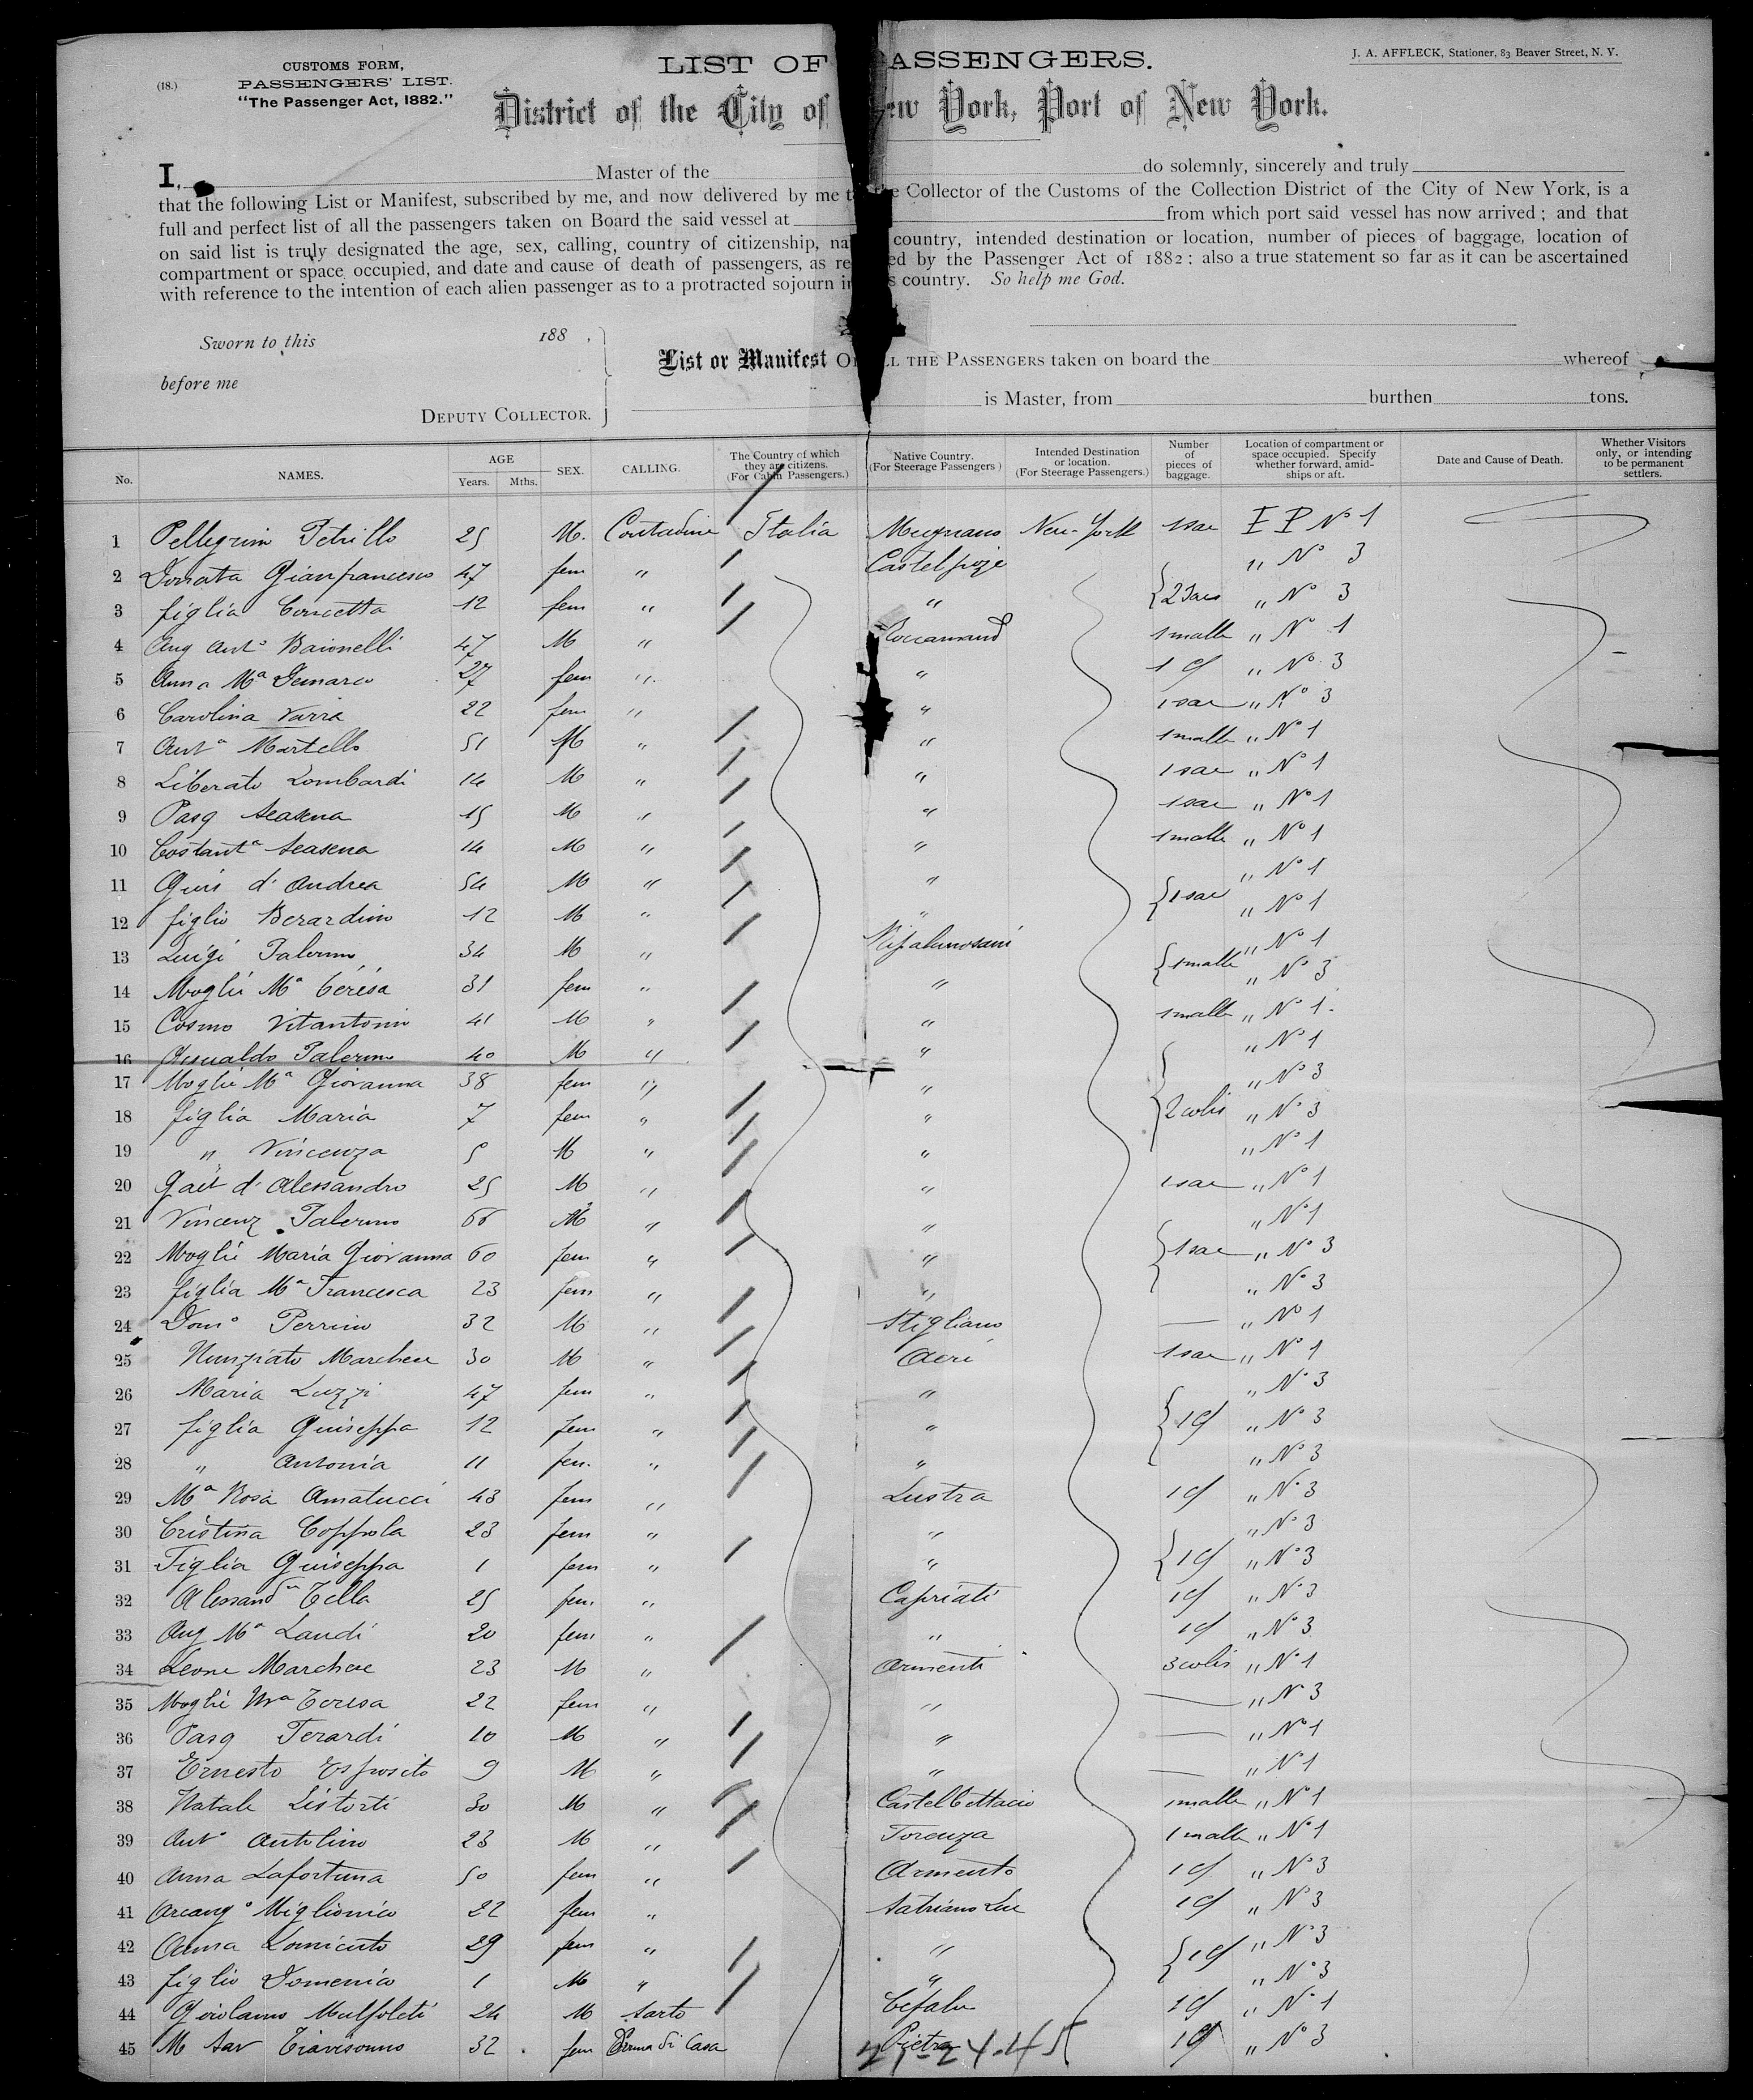 (18.)
CUSTOMS FORM,
PASSENGERS' LIST.
"The Passenger Act, 1882."
LIST OF PASSENGERS.
J. A. AFFLECK, Stationer, 83 Beaver Street, N. Y.
District of the City of New York, Port of New York.
I, Master of the do solemnly, sincerely and truly
that the following List or Manifest, subscribed by me, and now delivered by me to the Collector of the Customs of the Collection District of the City of New York, is a
full and perfect list of all the passengers taken on Board the said vessel at from which port said vessel has now arrived; and that
on said list is truly designated the age, sex, calling, country of citizenship, na country, intended destination or location, number of pieces of baggage, location of
compartment or space occupied, and date and cause of death of passengers, as re ed by the Passenger Act of 1882; also a true statement so far as it can be ascertained
with reference to the intention of each alien passenger as to a protracted sojourn in s country. So help me God.
Sworn to this 188 ,
before me
DEPUTY COLLECTOR.
List or Manifest OF ALL THE PASSENGERS taken on board the whereof
is Master, from burthen tons.
No. NAMES. AGE Years. Mths. SEX. CALLING. The Country of which they are citizens. (For Cabin Passengers.) Native Country. (For Steerage Passengers) Intended Destination or location. (For Steerage Passengers.) Number of pieces of baggage. Location of compartment or space occupied. Specify whether forward, amidships or aft. Date and Cause of Death. Whether Visitors only, or intending to be permanent settlers.
1 Pellegrim Petrillo 25 M. Contadine Italia Mugnano New-York 1 sac E P No 1
2 Donata Gianfrancesco 47 fem " " No 3
3 figlia Concetta 12 fem " " 2 sacs " No 3
4 Ang Anto Baionelli 47 M " 1 malle " No 1
5 Anna Ma Demarco 27 fem " " 1 cf " No 3
6 Carolina Varra 22 fem " " 1 sac " No 3
7 Anta Martello 51 M " " 1 malle " No 1
8 Liberato Lombardi 14 M " " 1 sac " No 1
9 Pasq 15 M " " 1 sac " No 1
10 Costanta 14 M " " 1 malle " No 1
11 d'Andrea 54 M " " 1 sac " No 1
12 figlio Berardino 12 M " " " No 1
13 Luigi Palermo 34 M " 1 malle " No 1
14 Moglie Ma Teresa 31 fem " " " No 3
15 Cosmo Vitantonio 41 M " " 1 malle " No 1
16 Palermo 40 M " " " No 1
17 Moglie Ma Giovanna 38 fem " " " No 3
18 figlia Maria 7 fem " " 2 colis " No 3
19 " Vincenza 5 M " " " No 1
20 Gaet d'Alessandro 25 M " " 1 sac " No 1
21 Vincenz Palermo 66 M " " " No 1
22 Moglie Maria Giovanna 60 fem " " 1 sac " No 3
23 figlia Ma Francesca 23 fem " " " No 3
24 Domo Perrino 32 M " Stigliano — " No 1
25 Nunziato Marchese 30 M " Acri 1 sac " No 1
26 Maria Luzzi 47 fem " " " No 3
27 figlia Guiseppa 12 fem " " 1 cf " No 3
28 " Antonia 11 fem. " " " No 3
29 Ma Rosa Amatucci 43 fem " Lustra 1 cf " No 3
30 Cristina Coppola 23 fem " " " No 3
31 Figlia Guiseppa 1 fem " " 1 cf " No 3
32 Tella 25 fem " Capriati 1 cf " No 3
33 Ang Ma Landi 20 fem " " 1 cf " No 3
34 Leone Marchese 23 M " Armenti 3 colis " No 1
35 Moglie Ma Teresa 22 fem " " — " No 3
36 Pasq Terardi 10 M " " — " No 1
37 Ernesto Esposito 9 M " " — " No 1
38 Natale Listorti 30 M " Castelbottacio 1 malle " No 1
39 Anto Antolino 23 M " Forenza 1 malle " No 1
40 Anna Lafortuna 50 fem " Armento 1 cf " No 3
41 Arcango Miglionico 22 fem " Satriano Luc 1 cf " No 3
42 Anna 29 fem " " 1 cf " No 3
43 figlio Domenico 1 M " " " No 3
44 24 M Sarto Cefalu 1 cf " No 1
45 M Sav 32 fem Donna di Casa Pietra 1 cf " No 3